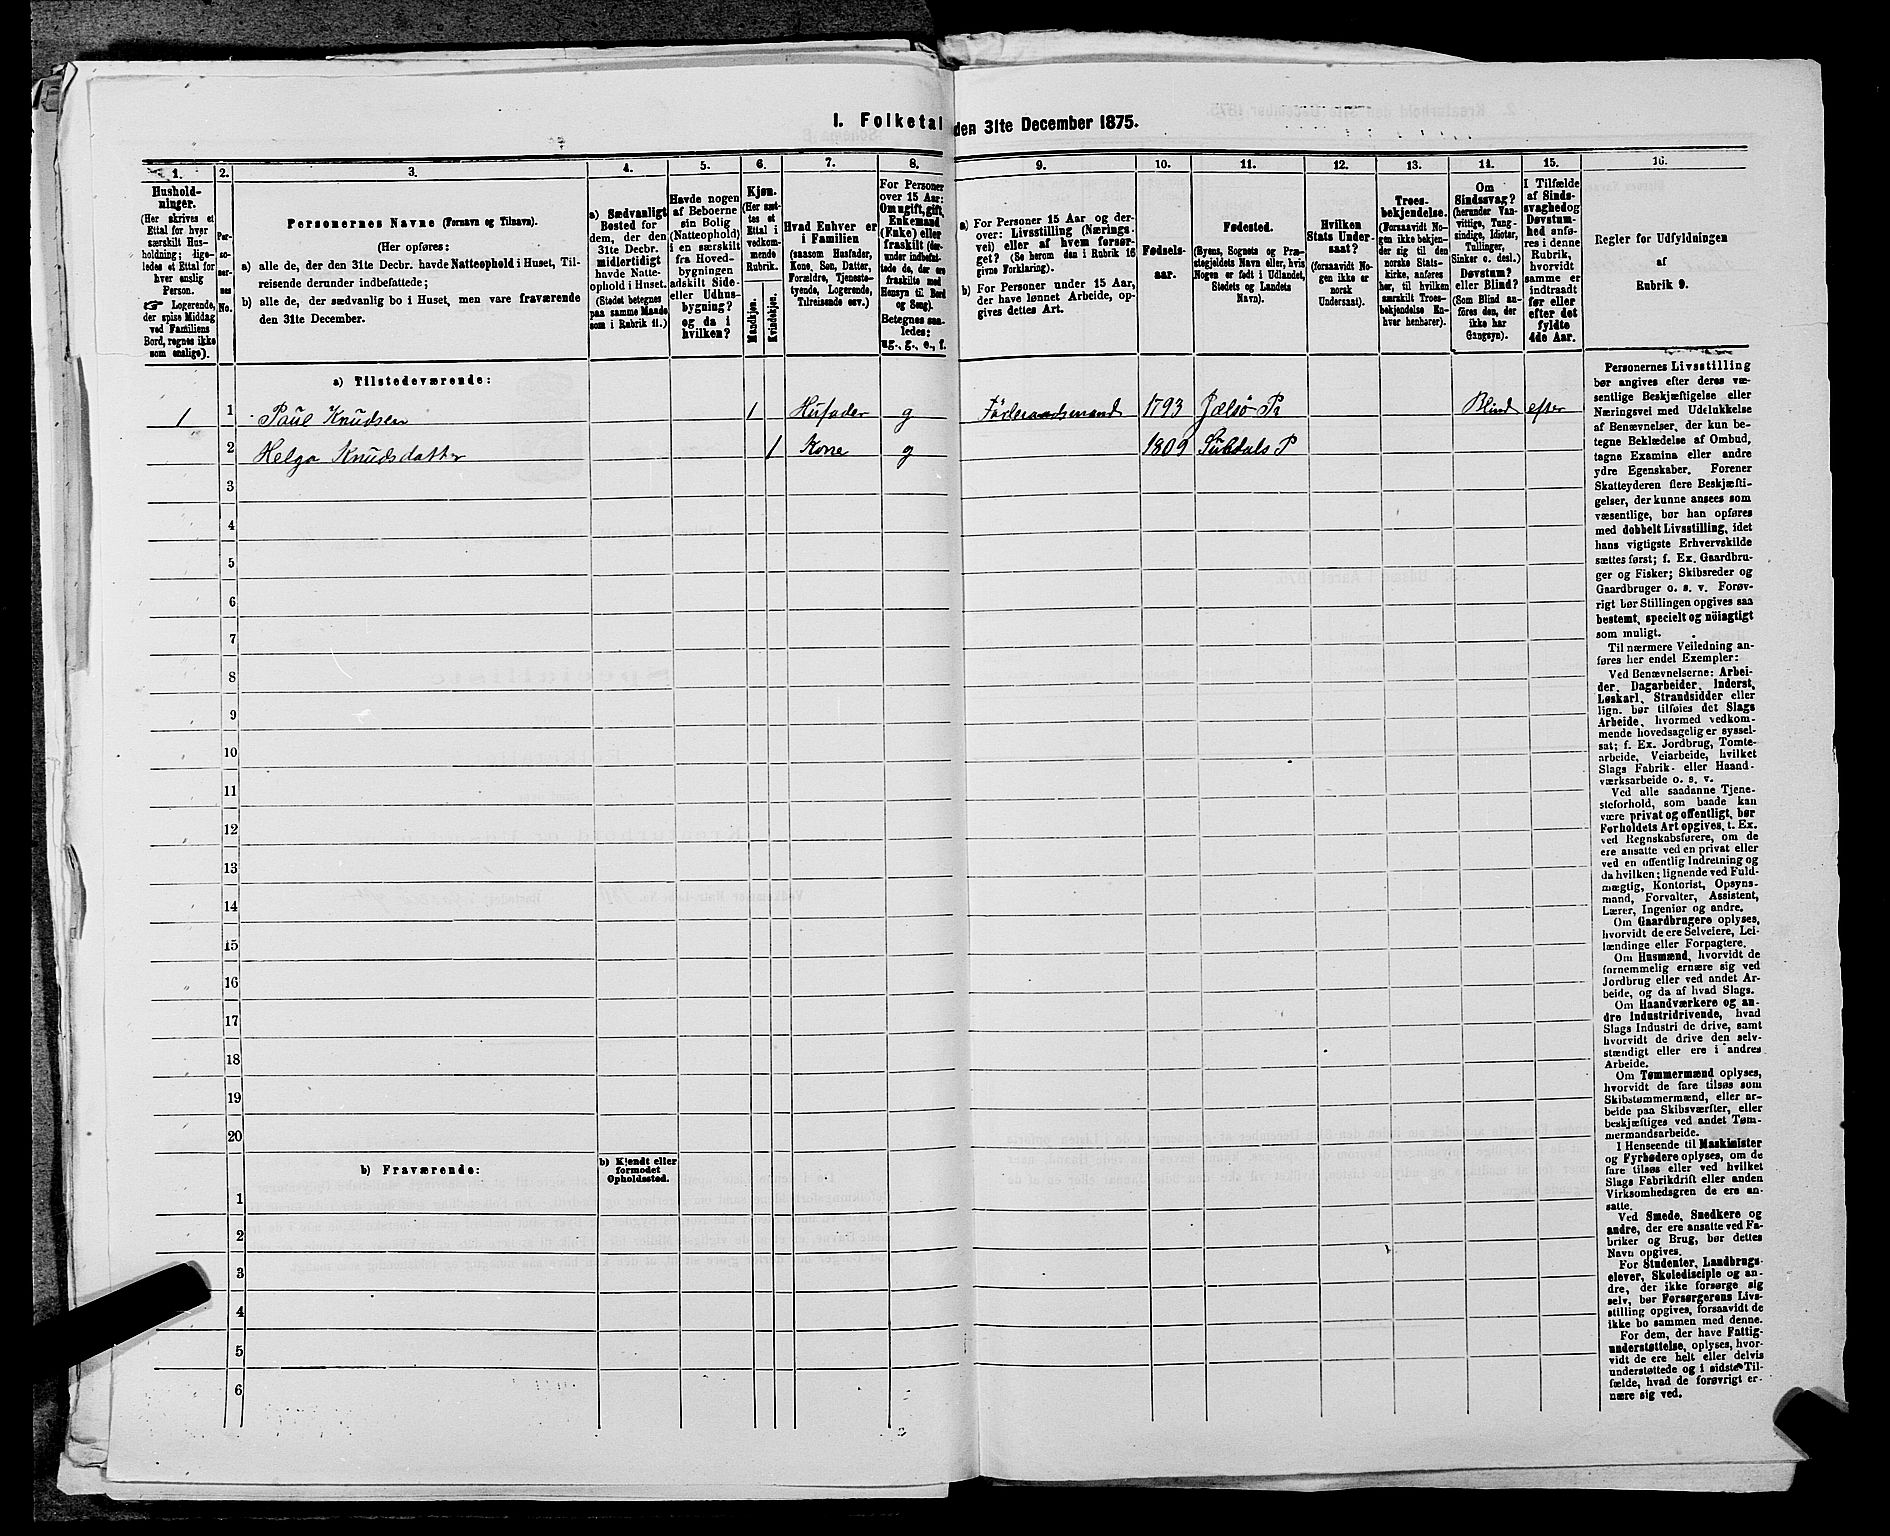 I. Folketal den 31te December 1875.
1. 2. 3. 4. 5. 6. 7. 8. 9. 10. 11. 12. 13. 14. 15. 16.
Hushold-
ninger.
(Her skrives et
Ettal for hver
særskilt Hus-
holdning; lige-
ledes et Ettal for
hver enslig
Person.
☞ Logerende,
der spise Middag
ved Familiens
Bord, regnes ikke
som enslige).
Per-
so-
ner-
nes
No.
Personernes Navne (Fornavn og Tilnavn).
(Her opføres:
a) alle de, der den 31te Decbr. havde Natteophold i Huset, Til-
reisende derunder indbefattede;
b) alle de, der sædvanlig bo i Huset, men vare fraværende
den 31te December.
a) Sædvanligt
Bosted for
dem, der den
31te Decbr.
midlertidigt
havde Natte-
ophold i Huset.
(Stedet betegnes
paa samme Maade
som i Rubrik 11.)
Havde nogen
af Beboerne
sin Bolig
(Natteophold)
i en særskilt
fra Hoved-
bygningen
adskilt Side-
eller Udhus-
bygning?
og da i
hvilken?
Kjøn.
(Her sæt-
tes et
Ettal i
vedkom-
mende
Rubrik.
Mandkjøn.
Kvindekjøn.
Hvad Enhver er
i Familien
(saasom Husfader,
Kone, Søn, Datter,
Forældre, Tjeneste-
tyende, Logerende,
Tilreisende osv.)
For Personer
over 15 Aar:
Om ugift, gift,
Enkemand
(Enke) eller
fraskilt (der-
under indbefat-
tede de, der ere
fraskilte med
Hensyn til Bord
og Seng).
Betegnes saa-
ledes:
ug., g., e., f.
a) For Personer 15 Aar og der-
over: Livsstilling (Nærings-
vei) eller af hvem forsør-
get? (Se herom den i Rubrik 16
givne Forklaring).
b) For Personer under 15 Aar,
der have lønnet Arbeide, op-
gives dettes Art.
Fødsels-
aar.
Fødested.
(Byens, Sognets og Præ-
stegjeldets Navn eller, hvis
Nogen er født i Udlandet,
Stedets og Landets
Navn).
Hvilken
Stats Under-
saat?
(forsaavidt No-
gen ikke er
norsk
Undersaat).
Troes-
bekjendelse.
(Forsaavidt No-
gen ikke bekjen-
der sig til den
norske Stats-
kirke, anføres
her, til hvilken
særskilt Troes-
bekjendelse En-
hver henhører).
Om
Sindssvag?
(herunder Van-
vittige, Tung-
sindige, Idioter,
Tullinger,
Sinker o. desl.)
Døvstum?
eller Blind?
(Som Blind an-
føres den, der
ikke har
Gangsyn).
I Tilfælde
af Sinds-
svaghed og
Døvstum-
hed anfø-
res i denne
Rubrik,
hvorvidt
samme er
indtraadt
før eller
efter det
fyldte
4de Aar.
Regler for Udfyldningen
af
Rubrik 9.
a) Tilstedeværende:
1 1 Paul Knudsen 1 Husfader g Föderaadsmand 1793 Jælsö P. Blind efter
2 Helga Knudsdatter 1 Kone g 1809 Suldals P
3
4
5
6
7
8
9
10
11
12
13
14
15
16
17
18
19
20
b) Fraværende:
b) Kjendt eller
formodet
Opholdssted.
1
2
3
4
5
6
Personernes Livsstilling
bør angives efter deres væ-
sentlige Beskjæftigelse eller
Næringsvei med Udelukkelse
af Benævnelser, der kun be-
tegne Beklædelse af Ombud,
tagne Examina eller andre
ydre Egenskaber. Forener
Skatteyderen flere Beskjæfti-
gelser, der kunne ansees som
væsentlige, bør han opføres
med dobbelt Livsstilling, idet
hans vigtigste Erhvervskilde
sættes først; f. Ex. Gaardbru-
ger og Fisker; Skibsreder og
Gaardbruger o. s. v. Forøv-
rigt bør Stillingen opgives saa
bestemt, specielt og nöiagtigt
som muligt.
Til nærmere Veiledning an-
føres her endel Exempler:
Ved Benævnelserne: Arbei-
der, Dagarbeider, Inderst,
Løskarl, Strandsidder eller
lign. bør tilføies det Slags
Arbeide, hvormed vedkom-
mende hovedsagelig er syssel-
sat; f. Ex. Jordbrug, Tomte-
arbeide, Veiarbeide, hvilket
Slags Fabrik- eller Haand-
værksarbeide o. s. v.
Ved alle saadanne Tjene-
steforhold, som baade kan
være privat og offentligt, bør
Forholdets Art opgives, t. Ex.
ved Regnskabsførere, om de
ere ansatte ved en privat eller
ved en offentlig Indretning og
da hvilken; lignende ved Fuld-
mægtig, Kontorist, Opsyns-
mand, Forvalter, Assistent,
Lærer, Ingeniør og andre.
Om Gaardbrugere oplyses,
hvorvidt de ere Selveiere, Lei-
lændinge eller Forpagtere.
Om Husmænd, hvorvidt de
fornemmelig ernære sig ved
Jordbrug eller ved andet Ar-
beide, og da af hvad Slags.
Om Haandværkere og an-
dre Industridrivende, hvad
Slags Industri de drive, samt
hvorvidt de drive den selv-
stændigt eller ere i andres
Arbeide.
Om Tømmermænd oplyses,
hvorvidt de fare tilsøs som
Skibstømmermænd, eller ar-
beide paa Skibsværfter, eller
beskjæftiges ved andet Tøm-
mermandsarbeide.
I Henseende til Maskinister
og Fyrbødere oplyses, om de
fare tilsøs eller ved hvilket
Slags Fabrikdrift eller anden
Virksomhedsgren de ere an-
satte.
Ved Smede, Snedkere og
andre, der ere ansatte ved Fa-
briker og Brug, bør dettes
Navn opgives.
For Studenter, Landbrugs-
elever, Skoledisciple og an-
dre, der ikke forsørge sig
selv, bør Forsørgerens Livs-
stilling opgives, forsaavidt de
ikke bo sammen med denne.
For dem, der have Fattig-
understøttelse, oplyses, hvor-
vidt de ere helt eller delvis
understøttede og i sidste Til-
fælde, hvad de forøvrigt er-
nære sig ved.